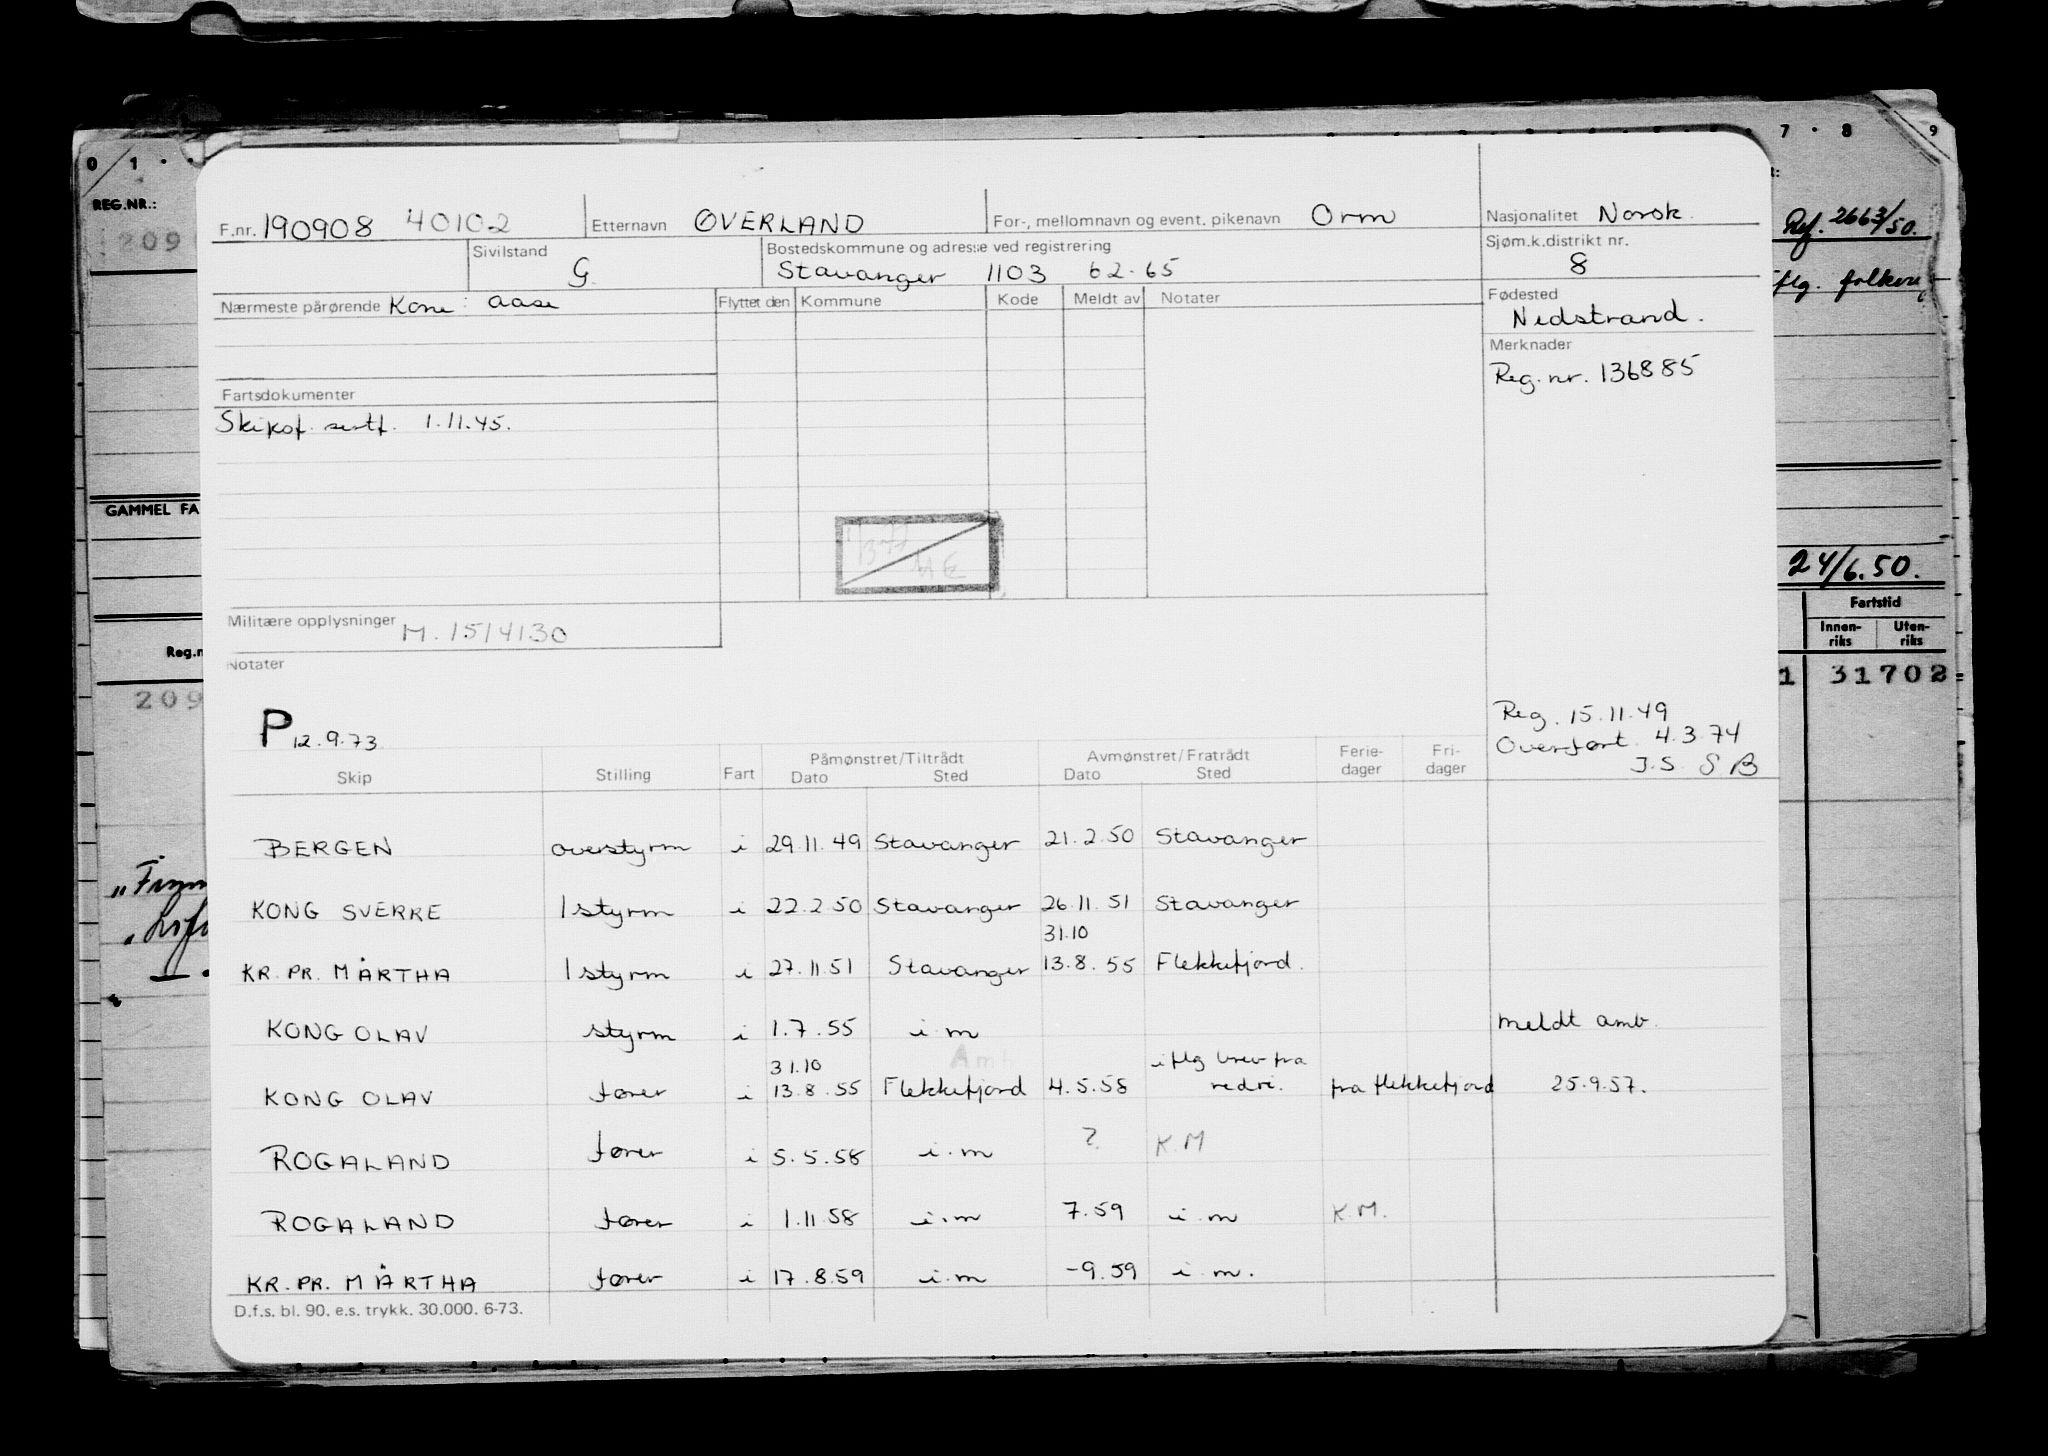 0 1 · 7 · 8 9
REG.NR.:
209
Ref. 2663/50.
iflg. folkereg
GAMMEL FA
24/6.50.
Fartstid
Innen-riks Uten-riks
Reg.n
209 1 31702
F.nr. 190908 40102 Etternavn ØVERLAND For-, mellomnavn og event. pikenavn Orm Nasjonalitet Norsk.
Sivilstand G. Bostedskommune og adresse ved registrering Sjøm.k.distrikt nr.
Stavanger 1103 62-65 8
Nærmeste pårørende Kone: Aase Flyttet den Kommune Kode Meldt av Notater Fødested
Nedstrand.
Merknader
Reg.nr. 136885
Fartsdokumenter
Skipsf. sertf. 1.11.45.
Militære opplysninger M. 1514130
Notater
P 12.9.73
Reg. 15.11.49
Overført 4.3.74
J.S. SB
Skip Stilling Fart Påmønstret/Tiltrådt Dato Sted Avmønstret/Fratrådt Dato Sted Ferie-dager Fri-dager
BERGEN overstyrm i 29.11.49 Stavanger 21.2.50 Stavanger
KONG SVERRE 1styrm i 22.2.50 Stavanger 26.11.51 Stavanger
31.10
KR. PR. MÄRTHA 1styrm i 27.11.51 Stavanger 13.8.55 Flekkefjord.
KONG OLAV styrm i 1.7.55 i.m meldt amb.
31.10 iflg brev fra
KONG OLAV fører i 13.8.55 Flekkefjord 4.5.58 rederi. fra Flekkefjord 25.9.57.
ROGALAND fører i 5.5.58 i.m ? K.M
ROGALAND fører i 1.11.58 i.m 7.59 i.m K.M.
KR. PR. MÄRTHA fører i 17.8.59 i.m -9.59 i.m.
D.f.s. bl. 90. e.s. trykk. 30.000. 6-73.